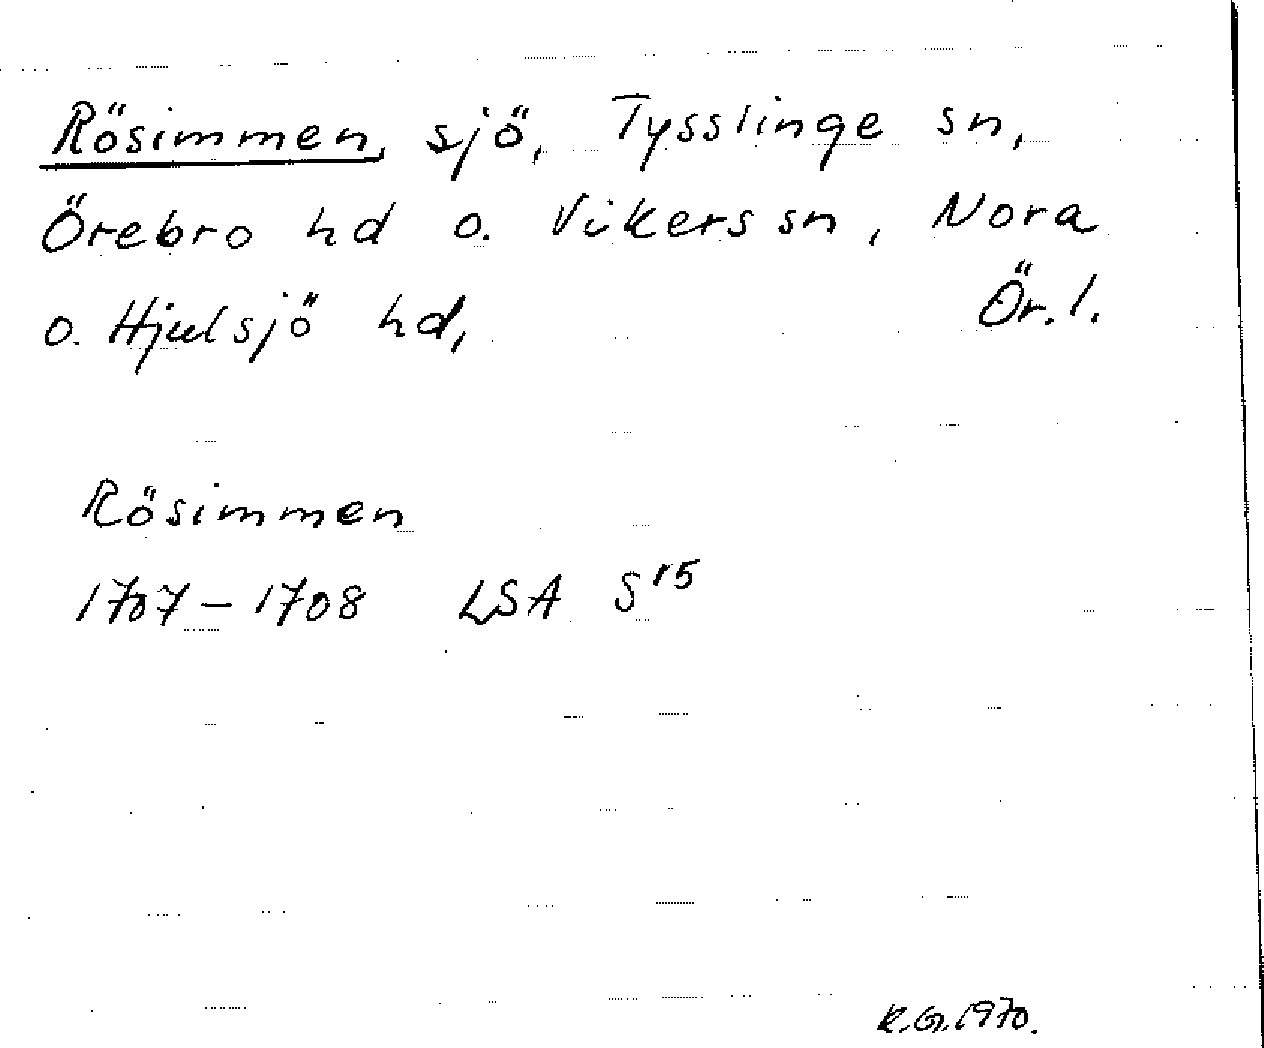 Rösimmen, sjö, Tysslinge sn,
Örebro hd o. Vikers sn, Nora
o. Hjulsjö hd, Ör. l.
Rösimmen
1707-1708 LSA S15
R.G. 1970.